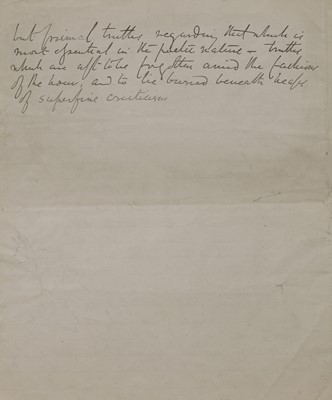 but primal truths regarding that which is
most essential in the poetic nature – truths
which are apt to be forgotten amid the fashion
of the hour, and to lie buried beneath heaps
of superfine criticism